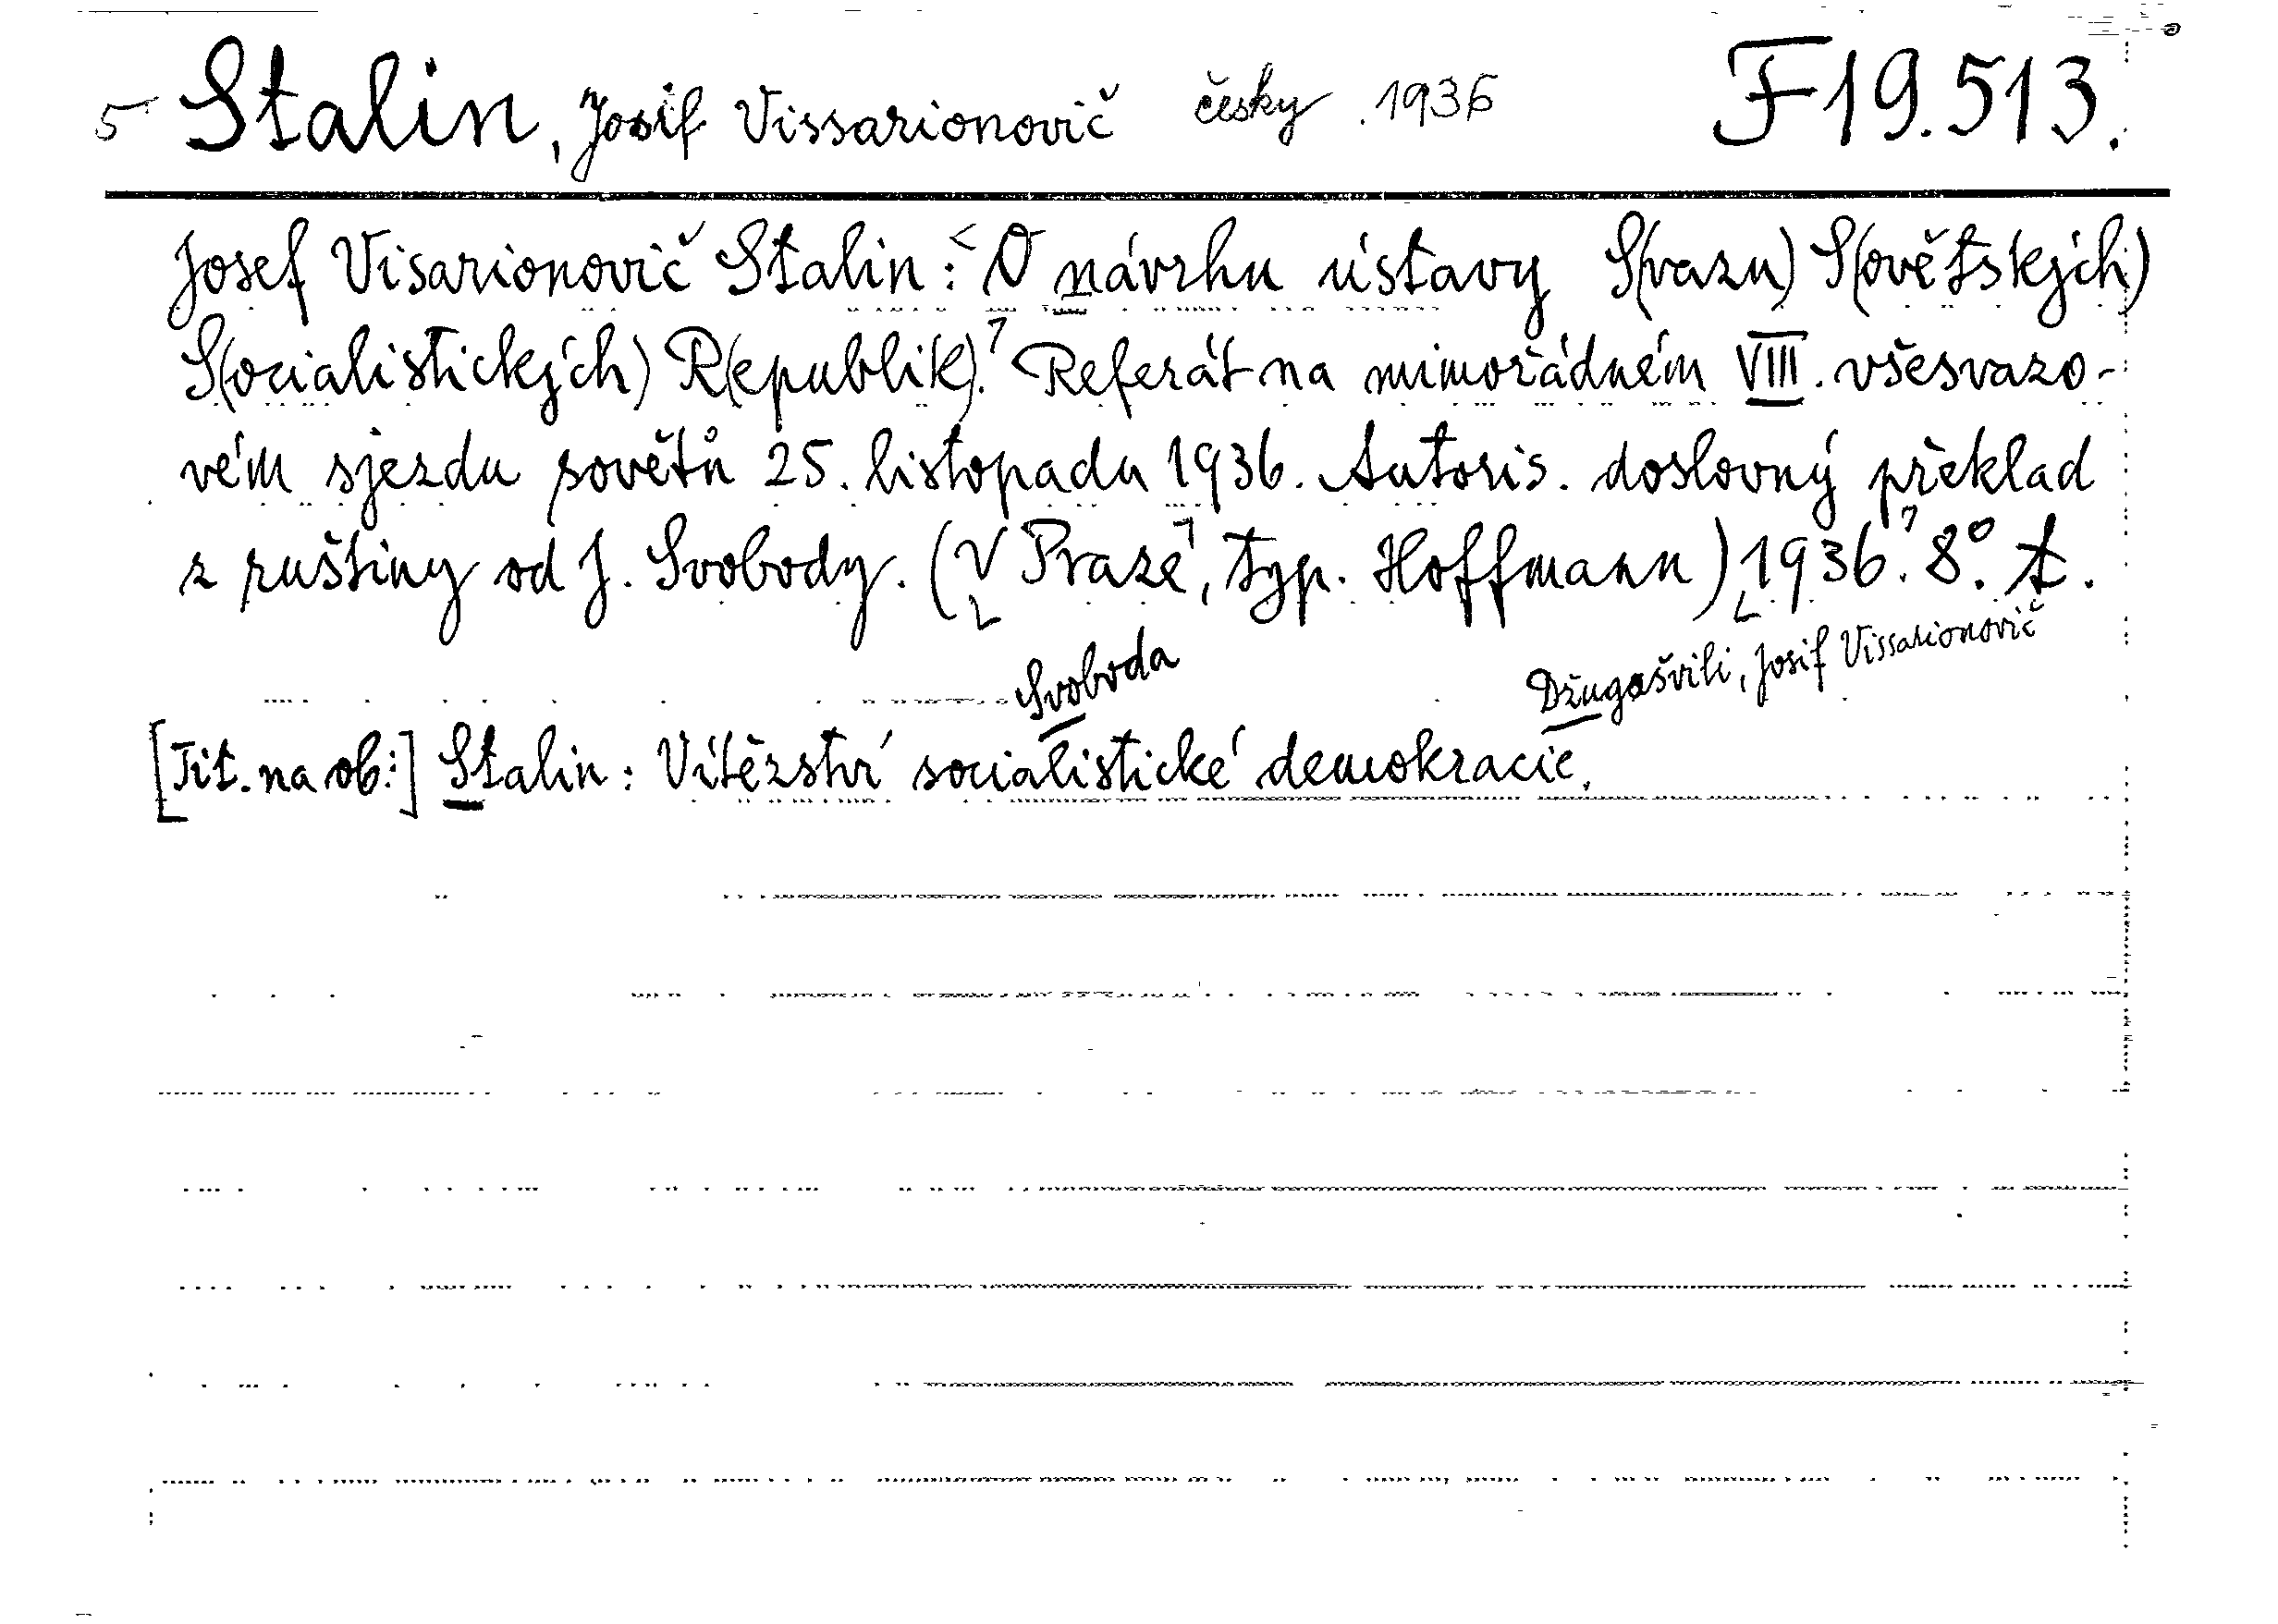 5 Stalin, Josif Vissarionovič česky 1936 F 19.513.
Josef Visarionovič Stalin: O návrhu ústavy S(vazu) S(ovětských)
S(ocialistických) R(epublik). Referát na mimořádném VIII. všesvazo-
vém sjezdu sovětů 25. listopadu 1936. Autoris. doslovný překlad
z ruštiny od J. Svobody. (V Praze, typ. Hoffmann) 1936. 8°. A.
Svoboda Džugašvili, Josif Vissarionovič
[Tit. na ob.:] Stalin: Vítězství socialistické demokracie.